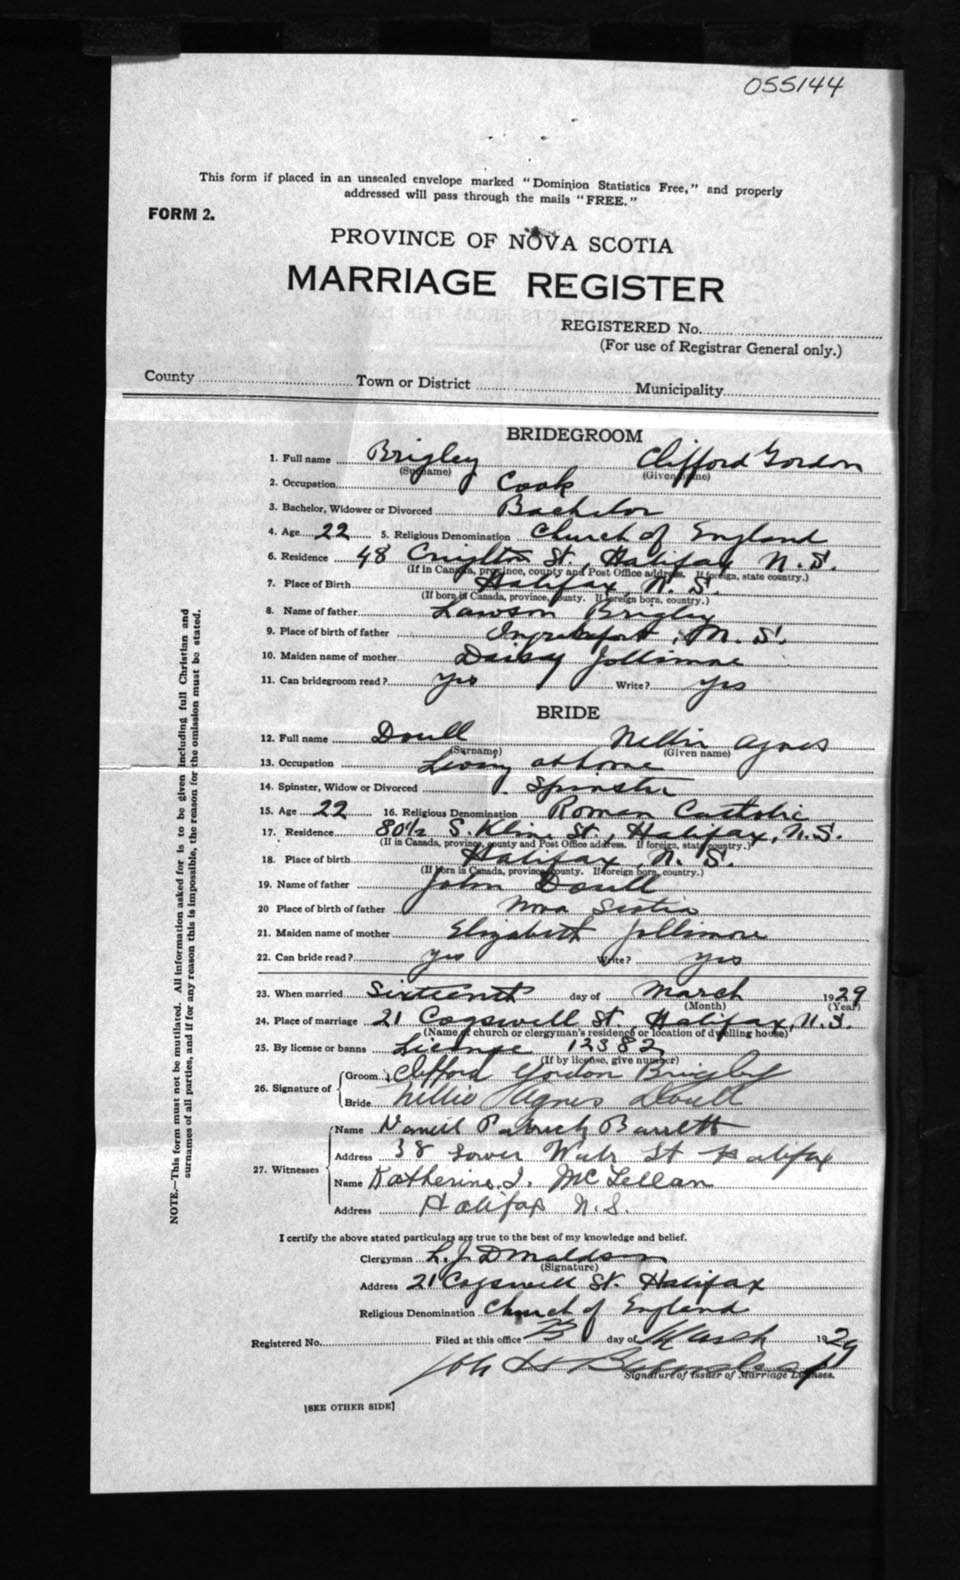 055144
This form if placed in an unsealed envelope marked "Dominion Statistics Free," and properly
addressed will pass through the mails "FREE."
FORM 2.
PROVINCE OF NOVA SCOTIA
MARRIAGE REGISTER
REGISTERED No.
(For use of Registrar General only.)
County Town or District Municipality
BRIDEGROOM
1. Full name Brigley Clifford Gordon
(Surname) (Given name)
2. Occupation Cook
3. Bachelor, Widower or Divorced Bachelor
4. Age 22 5. Religious Denomination Church of England
6. Residence 48 St., Halifax N. S.
(If in Canada, province, county and Post Office address. If foreign, state country.)
7. Place of Birth Halifax, N. S.
(If born in Canada, province, county. If foreign born, country.)
8. Name of father Lawson Brigley
9. Place of birth of father N. S.
10. Maiden name of mother Daisy Jollimore
11. Can bridegroom read? yes Write? yes
BRIDE
12. Full name Doull Nellie Agnes
(Surname) (Given name)
13. Occupation Living at home
14. Spinster, Widow or Divorced Spinster
15. Age 22 16. Religious Denomination Roman Catholic
17. Residence 80½ S. Kline St., Halifax, N. S.
(If in Canada, province, county and Post Office address. If foreign, state country.)
18. Place of birth Halifax, N. S.
(If born in Canada, province, county. If foreign born, country.)
19. Name of father John Doull
20 Place of birth of father Nova Scotia
21. Maiden name of mother Elizabeth Jollimore
22. Can bride read? yes Write? yes
23. When married Sixteenth day of March 1929
(Month) (Year)
24. Place of marriage 21 Cogswell St., Halifax, N. S.
(Name of church or clergyman's residence or location of dwelling house)
25. By license or banns License 12382
(If by license, give number)
26. Signature of
Groom Clifford Gordon Brigley
Bride Nellie Agnes Doull
27. Witnesses
Name Daniel Patrick Barrett
Address 38 Lower Water St Halifax
Name Katherine I. McLellan
Address Halifax N.S.
I certify the above stated particulars are true to the best of my knowledge and belief.
Clergyman L. J. Donaldson
(Signature)
Address 21 Cogswell St. Halifax
Religious Denomination Church of England
Registered No. Filed at this office day of March 1929
Signature of Issuer of Marriage Licenses.
[SEE OTHER SIDE]
NOTE.—This form must not be mutilated. All information asked for is to be given including full Christian and
surnames of all parties, and if for any reason this is impossible, the reason for the omission must be stated.